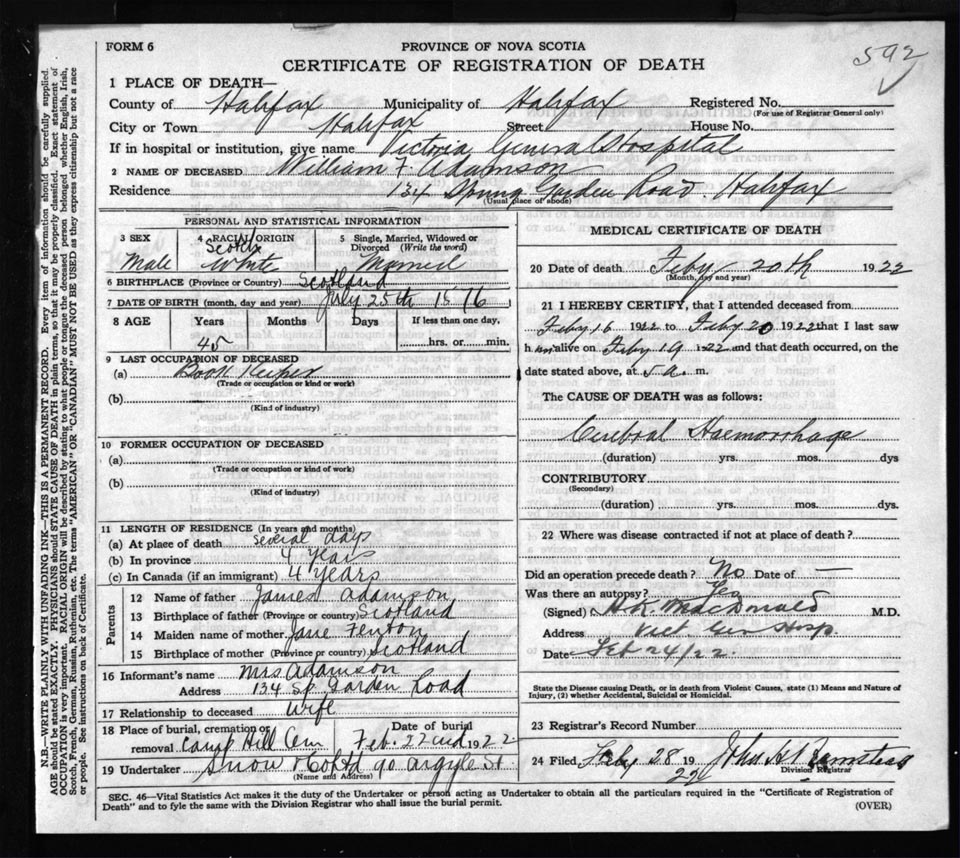 FORM 6
PROVINCE OF NOVA SCOTIA
592
CERTIFICATE OF REGISTRATION OF DEATH
1 PLACE OF DEATH—
County of Halifax Municipality of Halifax Registered No.
(For use of Registrar General only)
City or Town Halifax Street House No.
If in hospital or institution, give name Victoria General Hospital
2 NAME OF DECEASED William F. Adamson
Residence 134 Spring Garden Road Halifax
(Usual place of abode)
PERSONAL AND STATISTICAL INFORMATION
3 SEX
Male
4 RACIAL ORIGIN
Scotch
White
5 Single, Married, Widowed or
Divorced (Write the word)
Married
6 BIRTHPLACE (Province or Country) Scotland
7 DATE OF BIRTH (month, day and year) July 25th 1876
8 AGE Years Months Days If less than one day,
45 hrs. or min.
9 LAST OCCUPATION OF DECEASED
(a) Book Keeper
(Trade or occupation or kind or work)
(b)
(Kind of industry)
10 FORMER OCCUPATION OF DECEASED
(a)
(Trade or occupation or kind of work)
(b)
(Kind of industry)
11 LENGTH OF RESIDENCE (In years and months)
(a) At place of death Several days
(b) In province 4 years
(c) In Canada (if an immigrant) 4 years
Parents
12 Name of father James Adamson
13 Birthplace of father (Province or country) Scotland
14 Maiden name of mother Jane Fenton
15 Birthplace of mother (Province or country) Scotland
16 Informant's name Mrs Adamson
Address 134 Sp Garden Road
17 Relationship to deceased Wife
18 Place of burial, cremation or Date of burial
removal Camp Hill Cem Feb. 22nd 1922
19 Undertaker Snow & Co Ltd 90 Argyle St
(Name and Address)
MEDICAL CERTIFICATE OF DEATH
20 Date of death Feby 20th 1922
(Month, day and year)
21 I HEREBY CERTIFY, that I attended deceased from
Feby 16 1922 to Feby 20 1922 that I last saw
him alive on Feby 19 1922 and that death occurred, on the
date stated above, at 5 a. m.
The CAUSE OF DEATH was as follows:
Cerebral Haemorrhage
(duration) yrs. mos. dys
CONTRIBUTORY
(Secondary)
(duration) yrs. mos. dys
22 Where was disease contracted if not at place of death?
Did an operation precede death? No Date of —
Was there an autopsy? Yes
(Signed) H.K. MacDonald M.D.
Address Vict. Gen Hosp.
Date Feb 24/22.
State the Disease causing Death, or in death from Violent Causes, state (1) Means and Nature of
Injury, (2) whether Accidental, Suicidal or Homicidal.
23 Registrar's Record Number
24 Filed Feby 28 1922 John A
Division Registrar
SEC. 46—Vital Statistics Act makes it the duty of the Undertaker or person acting as Undertaker to obtain all the particulars required in the "Certificate of Registration of
Death" and to fyle the same with the Division Registrar who shall issue the burial permit.
(OVER)
N.B.—WRITE PLAINLY WITH UNFADING INK—THIS IS A PERMANENT RECORD. Every item of information should be carefully supplied.
AGE should be stated EXACTLY. PHYSICIANS should STATE CAUSE OF DEATH in plain terms, so that it may be properly classified. Exact statement of
OCCUPATION is very important. RACIAL ORIGIN will be described by stating to what people or tongue the deceased person belonged whether English, Irish,
Scotch, French, German, Russian, Ruthenian, etc. The terms "AMERICAN" OR "CANADIAN" MUST NOT BE USED as they express citizenship but not a race
or people. See instructions on back of Certificate.